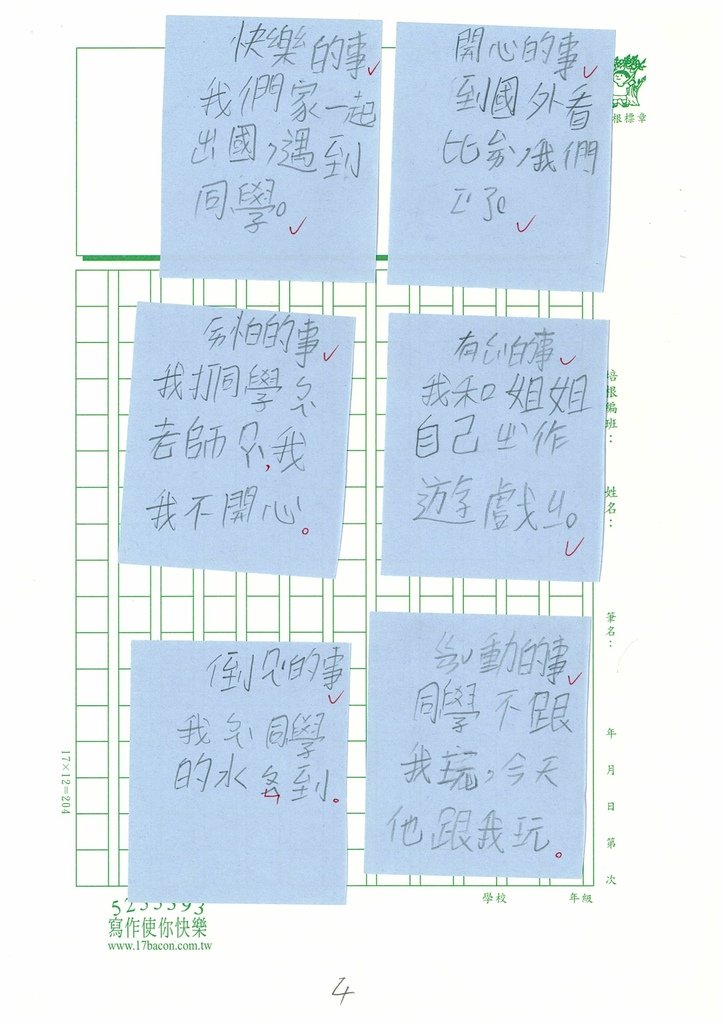 快樂的事
我們家一起
出國,遇到
同學。
開心的事
到國外看
比,我們
了。
怕的事
我打同學
老師,我
我不開心。
有的事
我和姐姐
自己作
遊戲。
倒的事
我同學
的水到。
動的事
同學不跟
我玩,今天
他跟我玩。
根標章
培根編班:
姓名:
筆名:
年 月 日 第 次
17×12=204
學校 年級
5255393
寫作使你快樂
www.17bacon.com.tw
4